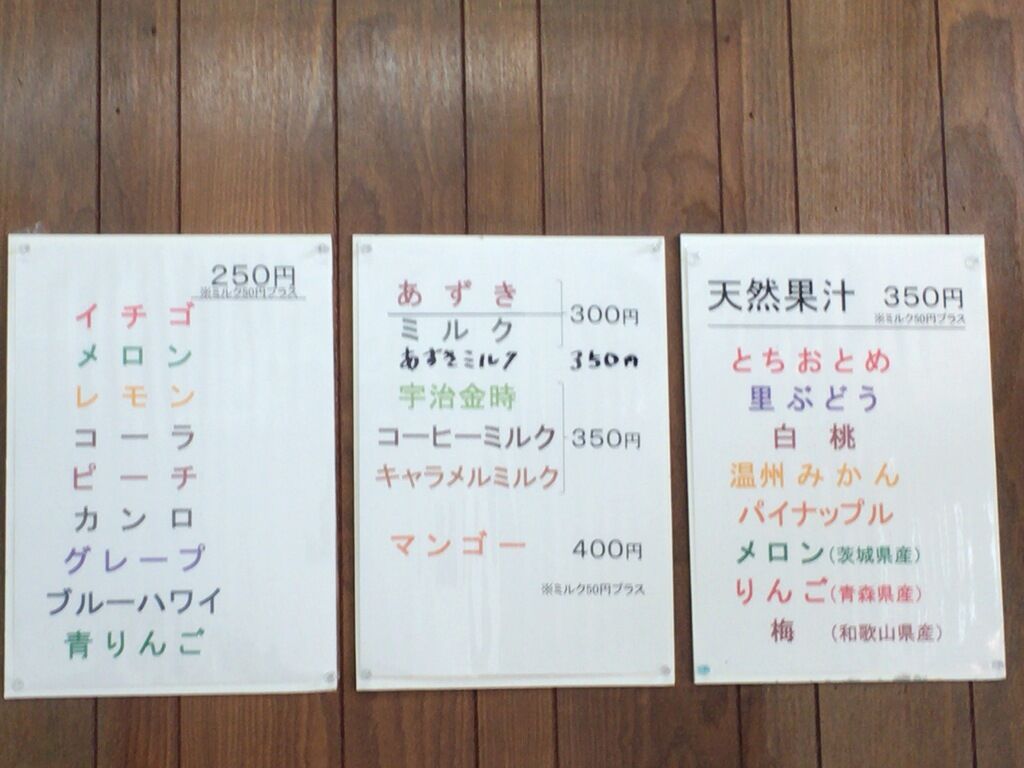 250円
※ミルク50円プラス
イチゴ
メロン
レモン
コーラ
ピーチ
カンロ
グレープ
ブルーハワイ
青りんご
あずき
ミルク
300円
あずきミルク 350円
宇治金時
コーヒーミルク
キャラメルミルク
350円
マンゴー 400円
※ミルク50円プラス
天然果汁 350円
※ミルク50円プラス
とちおとめ
里ぶどう
白桃
温州みかん
パイナップル
メロン(茨城県産)
りんご(青森県産)
梅 (和歌山県産)